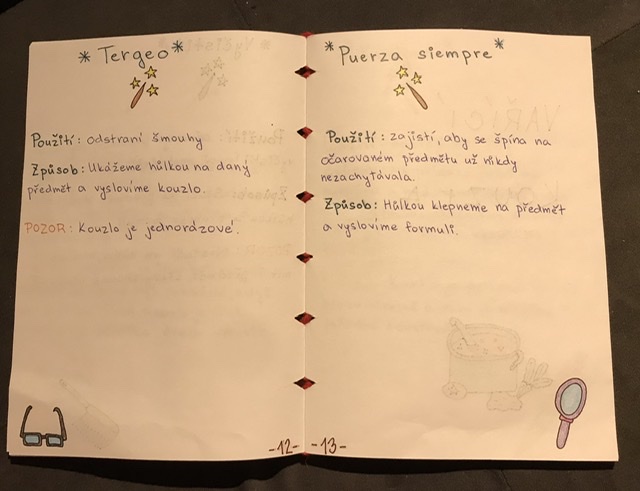 * Tergeo *
Použití: odstraní šmouhy
Způsob: Ukážeme hůlkou na daný
předmět a vyslovíme kouzlo.
POZOR: Kouzlo je jednorázové.
-12-
* Puerza siempre *
Použití: zajistí, aby se špína na
očarovaném předmětu už nikdy
nezachytávala.
Způsob: Hůlkou klepneme na předmět
a vyslovíme formuli.
-13-